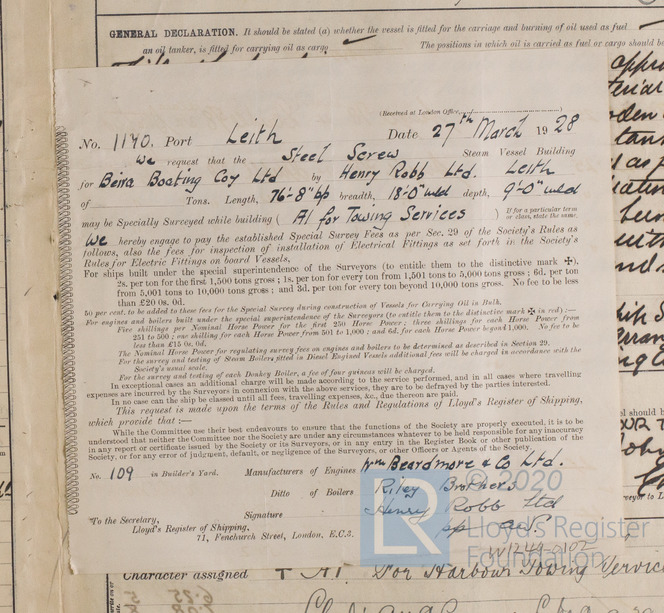 GENERAL DECLARATION. It should be stated (a) whether the vessel is fitted for the carriage and burning of oil used as fuel
an oil tanker, is fitted for carrying oil as cargo. The positions in which oil is carried as fuel or cargo should be
(Received at London Office,
No. 1140. Port Leith Date 27th March 1928
We request that the Steel Screw Steam Vessel Building
for Beira Boating Coy Ltd by Henry Robb Ltd. Leith
of Tons. Length, 76'-8" bp breadth, 18'-0" mld depth, 9'-0" mld
may be Specially Surveyed while building ( A1 for Towing Services ) If for a particular term or class, state the same.
We hereby engage to pay the established Special Survey Fees as per Sec. 29 of the Society's Rules as
follows, also the fees for inspection of installation of Electrical Fittings as set forth in the Society's
Rules for Electric Fittings on board Vessels.
For ships built under the special superintendence of the Surveyors (to entitle them to the distinctive mark ✠),
2s. per ton for the first 1,500 tons gross; 1s. per ton for every ton from 1,501 tons to 5,000 tons gross; 6d. per ton
from 5,001 tons to 10,000 tons gross; and 3d. per ton for every ton beyond 10,000 tons gross. No fee to be less
than £20 0s. 0d.
50 per cent. to be added to these fees for the Special Survey during construction of Vessels for Carrying Oil in Bulk.
For engines and boilers built under the special superintendence of the Surveyors (to entitle them to the distinctive mark ✠ in red) :—
Five shillings per Nominal Horse Power for the first 250 Horse Power; three shillings for each Horse Power from
251 to 500; one shilling for each Horse Power from 501 to 1,000; and 6d. for each Horse Power beyond 1,000. No fee to be
less than £15 0s. 0d.
The Nominal Horse Power for regulating survey fees on engines and boilers to be determined as described in Section 29.
For the survey and testing of Steam Boilers fitted in Diesel Engined Vessels additional fees will be charged in accordance with the
Society's usual scale.
For the survey and testing of each Donkey Boiler, a fee of four guineas will be charged.
In exceptional cases an additional charge will be made according to the service performed, and in all cases where travelling
expenses are incurred by the Surveyors in connexion with the above services, they are to be defrayed by the parties interested.
In no case can the ship be classed until all fees, travelling expenses, &c., due thereon are paid.
This request is made upon the terms of the Rules and Regulations of Lloyd's Register of Shipping,
which provide that :—
While the Committee use their best endeavours to ensure that the functions of the Society are properly executed, it is to be
understood that neither the Committee nor the Society are under any circumstances whatever to be held responsible for any inaccuracy
in any report or certificate issued by the Society or its Surveyors, or in any entry in the Register Book or other publication of the
Society, or for any error of judgment, default, or negligence of the Surveyors, or other Officers or Agents of the Society.
No. 109 in Builder's Yard. Manufacturers of Engines Wm Beardmore & Co Ltd.
Ditto of Boilers Riley Brothers
Signature Henry Robb Ltd
pp
To the Secretary,
Lloyd's Register of Shipping,
71, Fenchurch Street, London, E.C.3.
LR © 2020
Lloyd's Register
Foundation
Character assigned + A1. For Harbour Towing Service